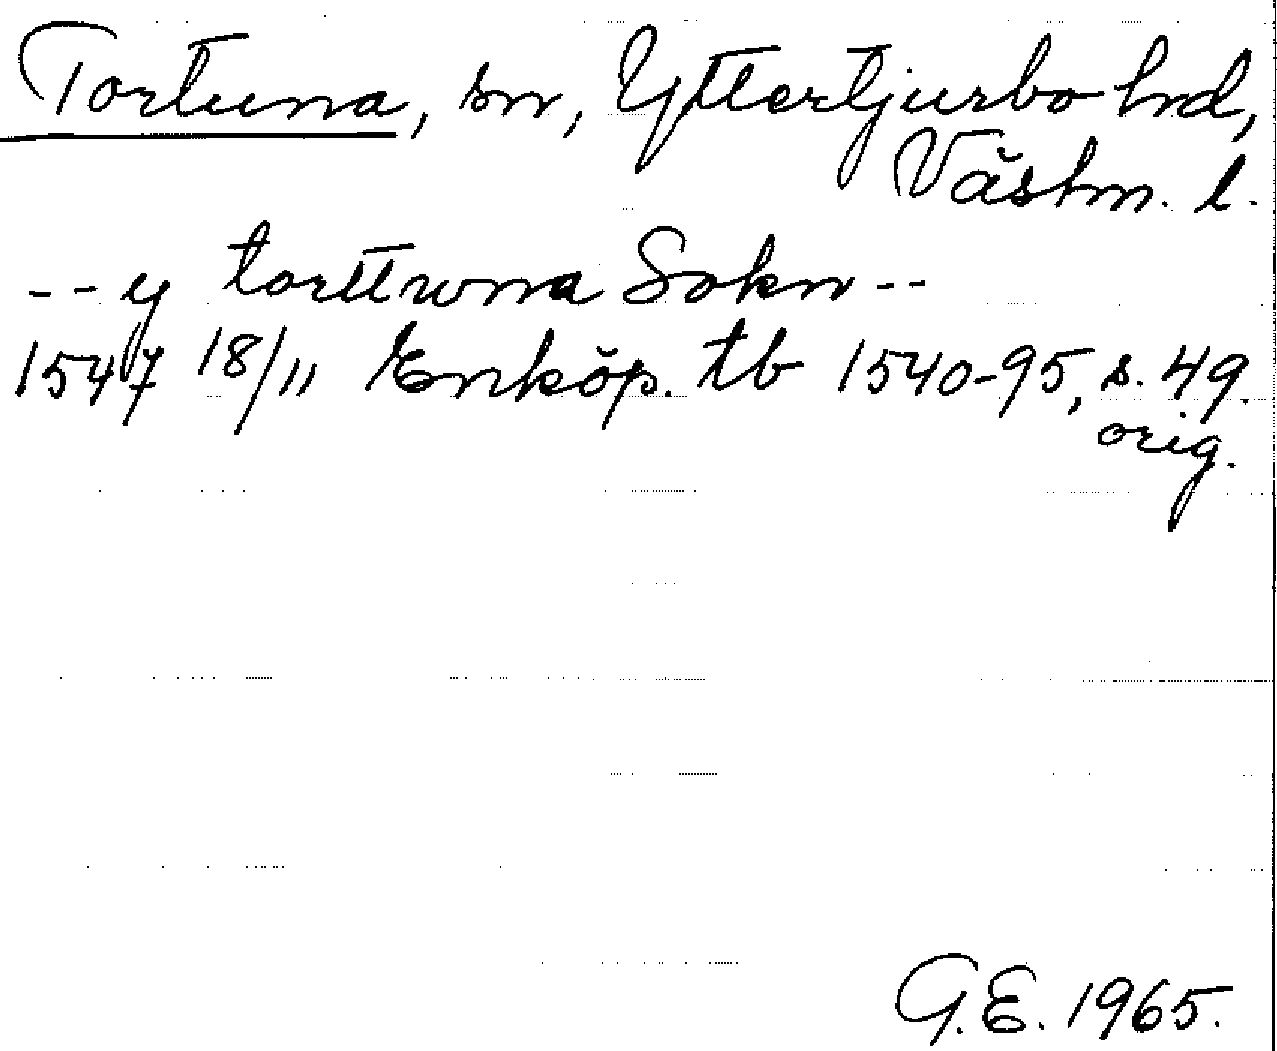 Tortuna, sn, Yttertjurbo hrd,
Västm. l.
-- y torttwna Sokn --
1547 18/11 Enköp. tb 1540-95, s. 49.
orig.
G.E. 1965.